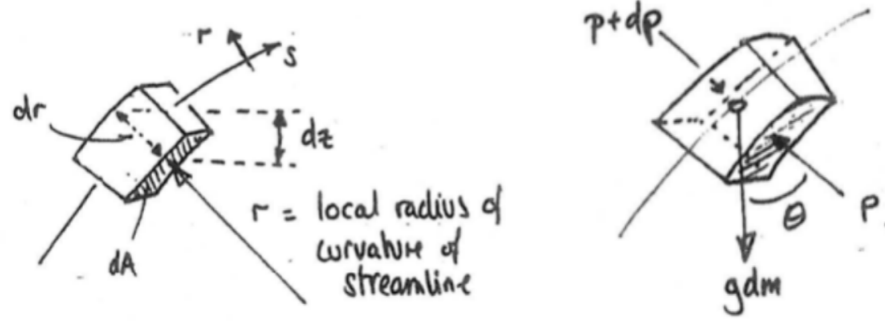 r
s
dr
dz
dA
r = local radius of
curvature of
streamline
p+dp
θ
p
gdm